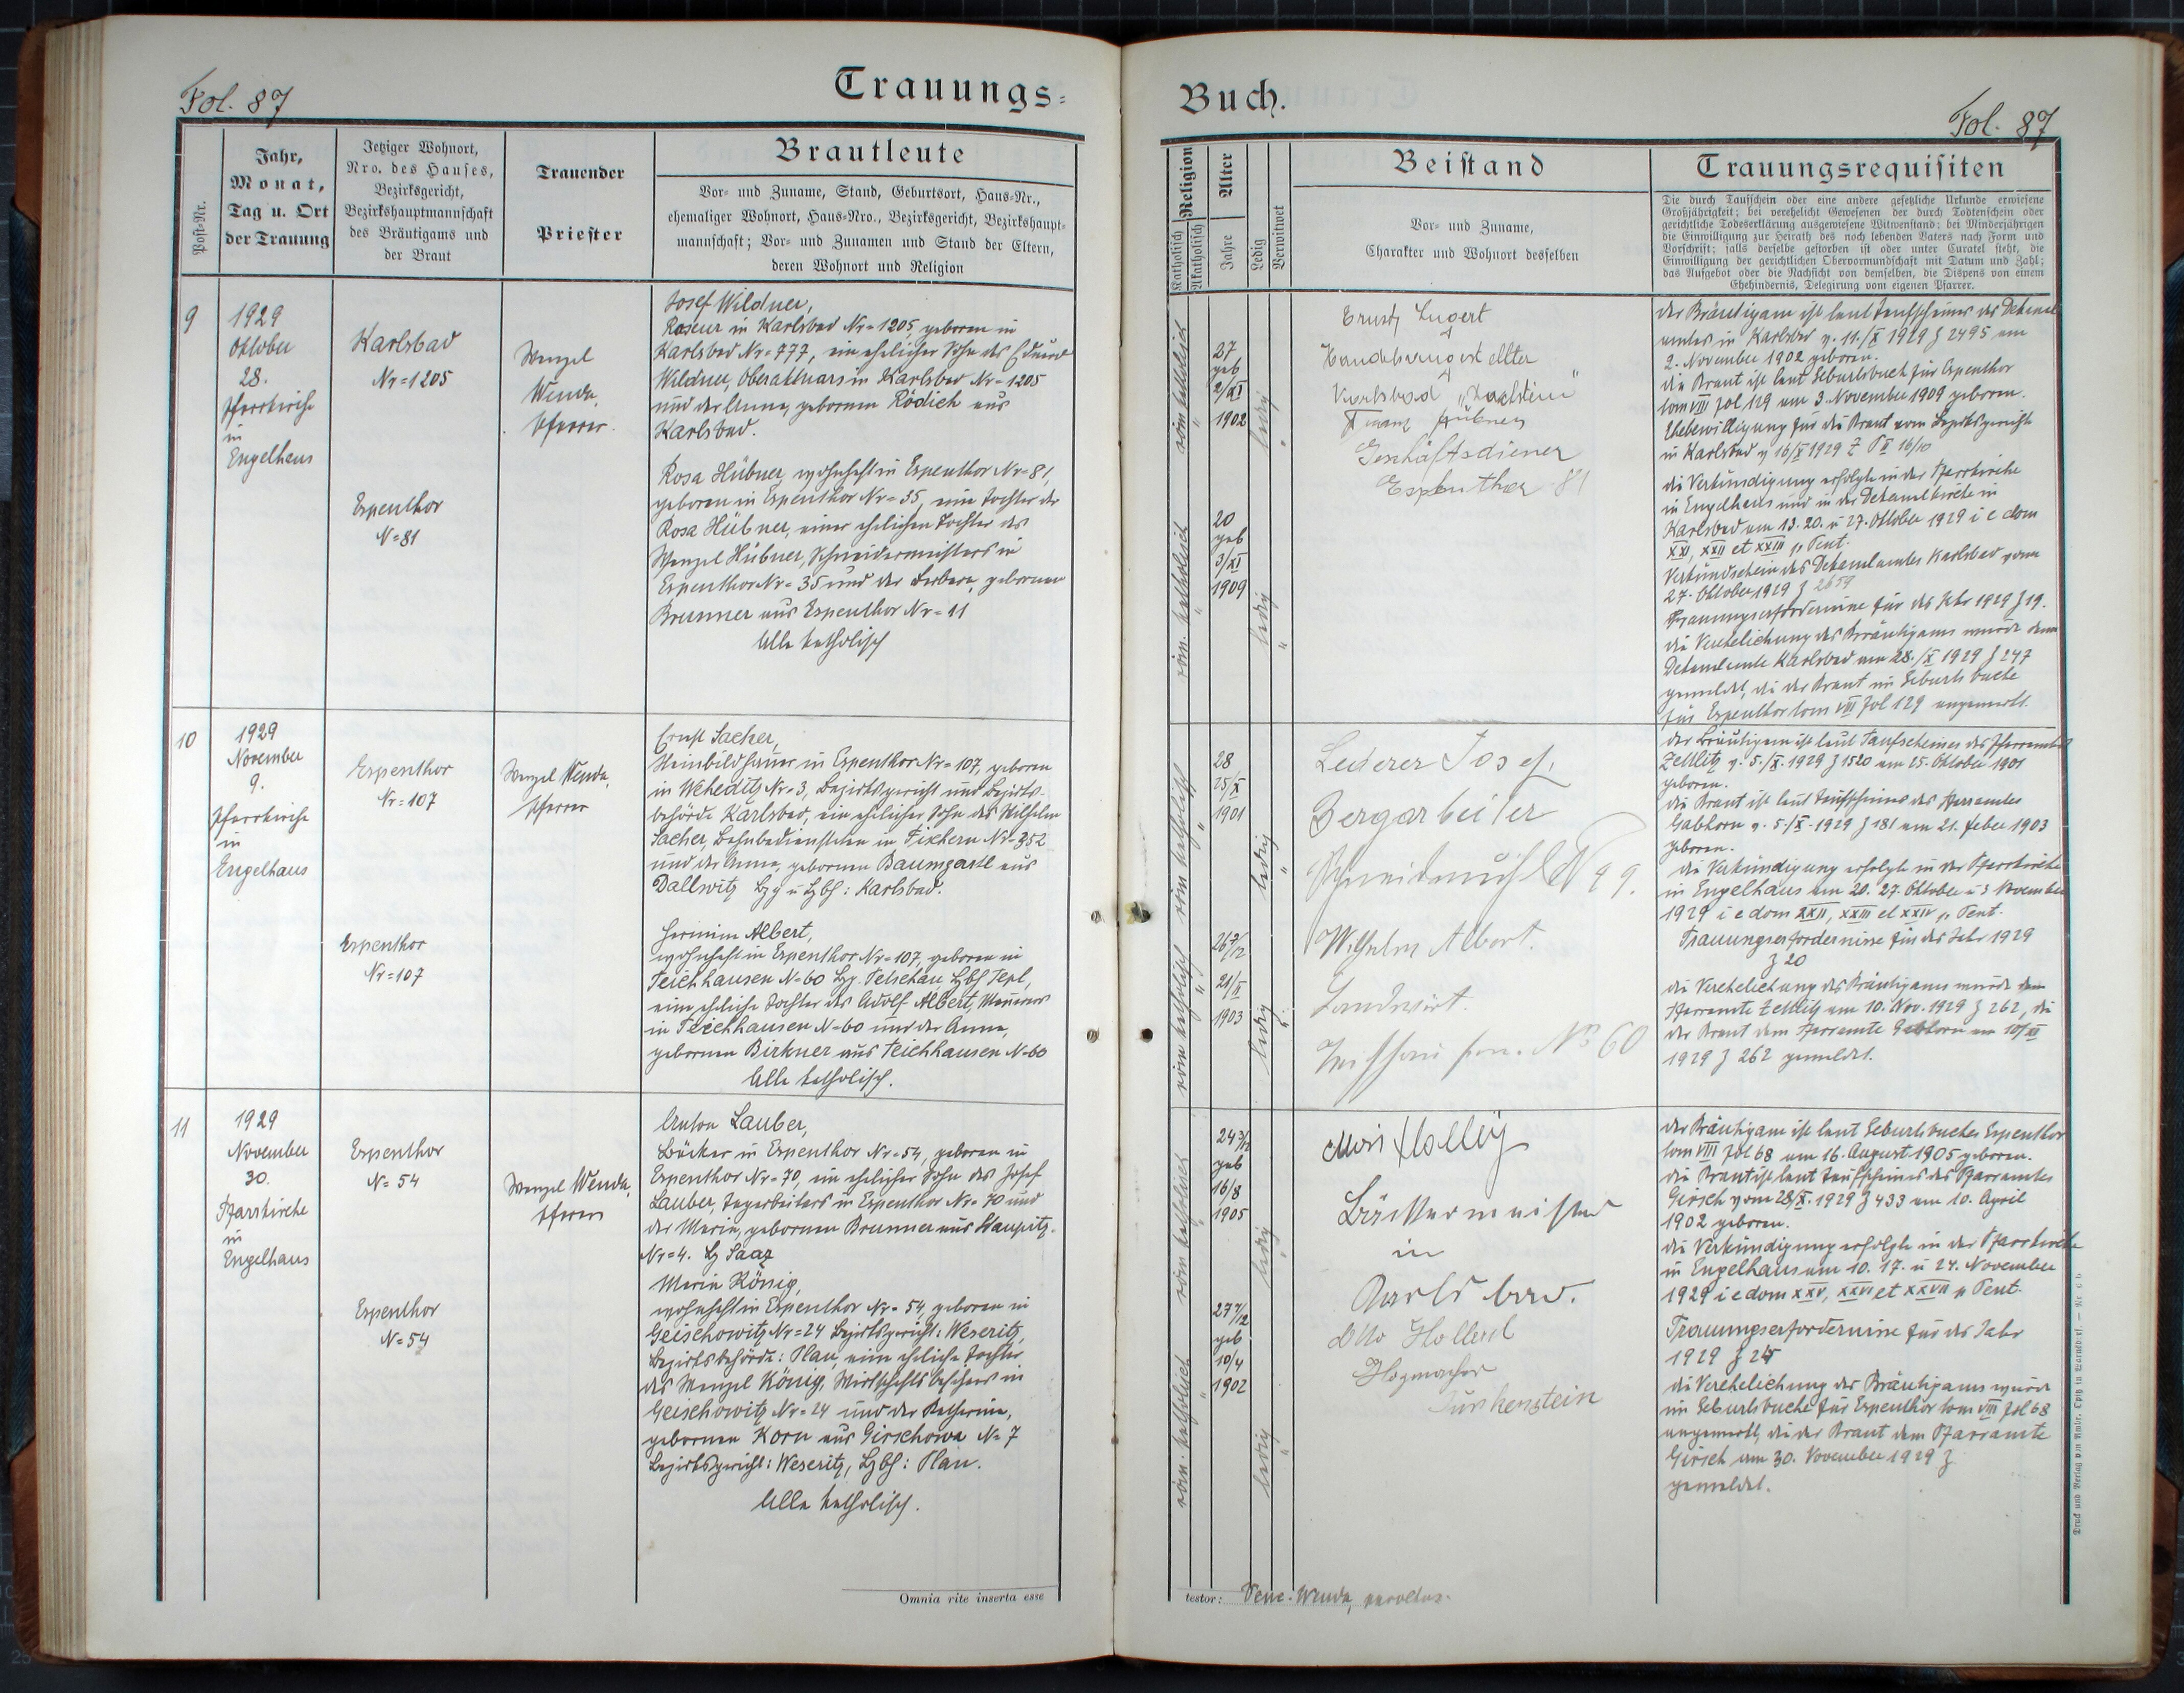 Fol. 87
Trauungs-
Post-Nr.
Jahr,
Monat,
Tag u. Ort
der Trauung
Jetziger Wohnort,
Nro. des Hauses,
Bezirksgericht,
Bezirkshauptmannschaft
des Bräutigams und
der Braut
Trauender
Priester
Brautleute
Vor- und Zuname, Stand, Geburtsort, Haus-Nr.,
ehemaliger Wohnort, Haus-Nro., Bezirksgericht, Bezirkshaupt-
mannschaft; Vor- und Zunamen und Stand der Eltern,
deren Wohnort und Religion
9
1929
Oktober
28.
Pfarrkirche
in
Engelhaus
Karlsbad
Nr=1205
Espenthor
N=81
Wenzel
Wenda,
Pfarrer.
Josef Wildner,
Raseur in Karlsbad Nr=1205, geboren in
Karlsbad Nr=777, ein ehelicher Sohn des Eduard
Wildner, Oberaktuars in Karlsbad Nr=1205
und der Anna, gebornen Rödich aus
Karlsbad.
Rosa Hübner, wohnhaft in Espenthor Nr=81,
geboren in Espenthor Nr=35, eine Tochter der
Rosa Hübner, einer ehelichen Tochter des
Wenzel Hübner, Schneidermeisters in
Espenthor Nr=35 und der Barbara, gebornen
Brunner aus Espenthor Nr=11
Alle katholisch
10
1929
November
9.
Pfarrkirche
in
Engelhaus
Espenthor
Nr=107
Espenthor
Nr=107
Wenzel Wenda,
Pfarrer
Ernst Sacher,
Steinbildhauer in Espenthor Nr=107, geboren
in Weheditz Nr=3, Bezirksgericht und Bezirks-
behörde Karlsbad, ein ehelicher Sohn des Wilhelm
Sacher, Bahnbediensteten in Fischern Nr=352
und der Anna, gebornen Baumgartl aus
Dallwitz Bzg u Bzbh: Karlsbad.
Hermine Albert,
wohnhaft in Espenthor Nr=107, geboren in
Teichhausen N=60 Bzg. Petschau Bzbh Tepl,
eine eheliche Tochter des Adolf Albert, Maurers
in Teichhausen N=60 und der Anna,
gebornen Birkner aus Teichhausen N=60
Alle katholisch.
11
1929
November
30.
Pfarrkirche
in
Engelhaus
Espenthor
N=54
Espenthor
N=54
Wenzel Wenda,
Pfarrer
Anton Lauber,
Bäcker in Espenthor Nr=54, geboren in
Espenthor Nr=70, ein ehelicher Sohn des Josef
Lauber, Tagarbeiters in Espenthor Nr=70 und
der Maria, gebornen Brunner aus
Nr=4. Bz Saaz
Maria König,
wohnhaft in Espenthor Nr=54, geboren in
Geischowitz Nr=24 Bezirksgericht: Weseritz,
Bezirksbehörde: Plan, eine eheliche Tochter
des Wenzel König, Wirtschaftsbesitzers in
Geischowitz Nr=24 und der Katharina,
gebornen Korn aus Girschowa N=7
Bezirksgericht: Weseritz, Bzbh: Plan.
Alle katholisch.
Omnia rite inserta esse
Buch.
Fol. 87
Religion
Katholisch
Akatholisch
Alter
Jahre
Ledig
Verwitwet
Beistand
Vor- und Zuname,
Charakter und Wohnort desselben
Trauungsrequisiten
Die durch Taufschein oder eine andere gesetzliche Urkunde erwiesene
Großjährigkeit; bei verehelicht Gewesenen der durch Todtenschein oder
gerichtliche Todeserklärung ausgewiesene Witwenstand; bei Minderjährigen
die Einwilligung zur Heirath des noch lebenden Vaters nach Form und
Vorschrift; falls derselbe gestorben ist oder unter Curatel steht, die
Einwilligung der gerichtlichen Obervormundschaft mit Datum und Zahl;
das Aufgebot oder die Nachsicht von demselben, die Dispens von einem
Ehehindernis, Delegirung vom eigenen Pfarrer.
röm. katholisch
27
geb
2/XI
1902
ledig
röm. katholisch
20
geb
3/XI
1909
ledig
Ernst Lugert
Handelsangestellter
Karlsbad
Franz Hübner
Geschäftsdiener
Espenthor 81
Der Bräutigam ist laut Taufscheines des Dekanal
amtes in Karlsbad v. 11./X 1929 Z 2495 am
2. November 1902 geboren.
Die Braut ist laut Geburtsbuch für Espenthor
tom VIII fol 129 am 3. November 1909 geboren.
Ehebewilligung für die Braut vom Bezirksgericht
in Karlsbad v 16/X 1929 Z P II 16/10
Die Verkündigung erfolgte in der Pfarrkirche
in Engelhaus und in der Dekanalkirche in
Karlsbad am 13. 20. u 27. Oktober 1929 i e dom
XXI, XXII et XXIII p. Pent.
Verkündschein des Dekanalamtes Karlsbad vom
27. Oktober 1929 Z 2659
Trauungserfordernisse für das Jahr 1929 Z 19.
Die Verehelichung des Bräutigams wurde dem
Dekanalamte Karlsbad am 28./X 1929 Z 247
gemeldet, die der Braut im Geburtsbuche
für Espenthor tom VIII fol 129 angemerkt.
röm katholisch
28
25/X
1901
ledig
röm katholisch
26 7/12
21/II
1903
ledig
Lederer Josef,
Bergarbeiter
Wilhelm Albert.
Landwirt.
No 60
Der Bräutigam ist laut Taufscheines des Pfarramtes
Zettlitz v. 5./X. 1929 Z 1520 am 25. Oktober 1901
geboren.
Die Braut ist laut Taufscheines des Pfarramtes
Gabhorn v. 5./X. 1929 Z 181 am 21. Feber 1903
geboren.
Die Verkündigung erfolgte in der Pfarrkirche
in Engelhaus am 20. 27. Oktober u 3 November
1929 i e dom XXII, XXIII et XXIV p. Pent.
Trauungserfordernisse für das Jahr 1929
Z 20
Die Verehelichung des Bräutigams wurde dem
Pfarramte Zettlitz am 10. Nov. 1929 Z 262, die
der Braut dem Pfarramte Gabhorn am 10/XI
1929 Z 262 gemeldet.
röm katholisch
24 3/12
geb
16/8
1905
ledig
röm. katholisch
27 7/12
geb
10/4
1902
ledig
Bäckermeister
in
Karlsbad.
Otto
Der Bräutigam ist laut Geburtsbuches Espenthor
tom VIII fol 68 am 16. August 1905 geboren.
Die Braut ist laut Taufscheines des Pfarramtes
Girsch vom 28/X. 1929 Z 433 am 10. April
1902 geboren.
Die Verkündigung erfolgte in der Pfarrkirche
in Engelhaus am 10. 17. u 24. November
1929 i e dom XXV, XXVI et XXVII p Pent.
Trauungserfordernisse für das Jahr
1929 Z
Die Verehelichung des Bräutigams wurde
im Geburtsbuche für Espenthor tom VIII fol 68
angemerkt, die der Braut dem Pfarramte
Girsch am 30. November 1929 Z
gemeldet.
testor: Wenc. Wenda, parochus.
Druck und Verlag von Ambr. Opitz in Warnsdorf.